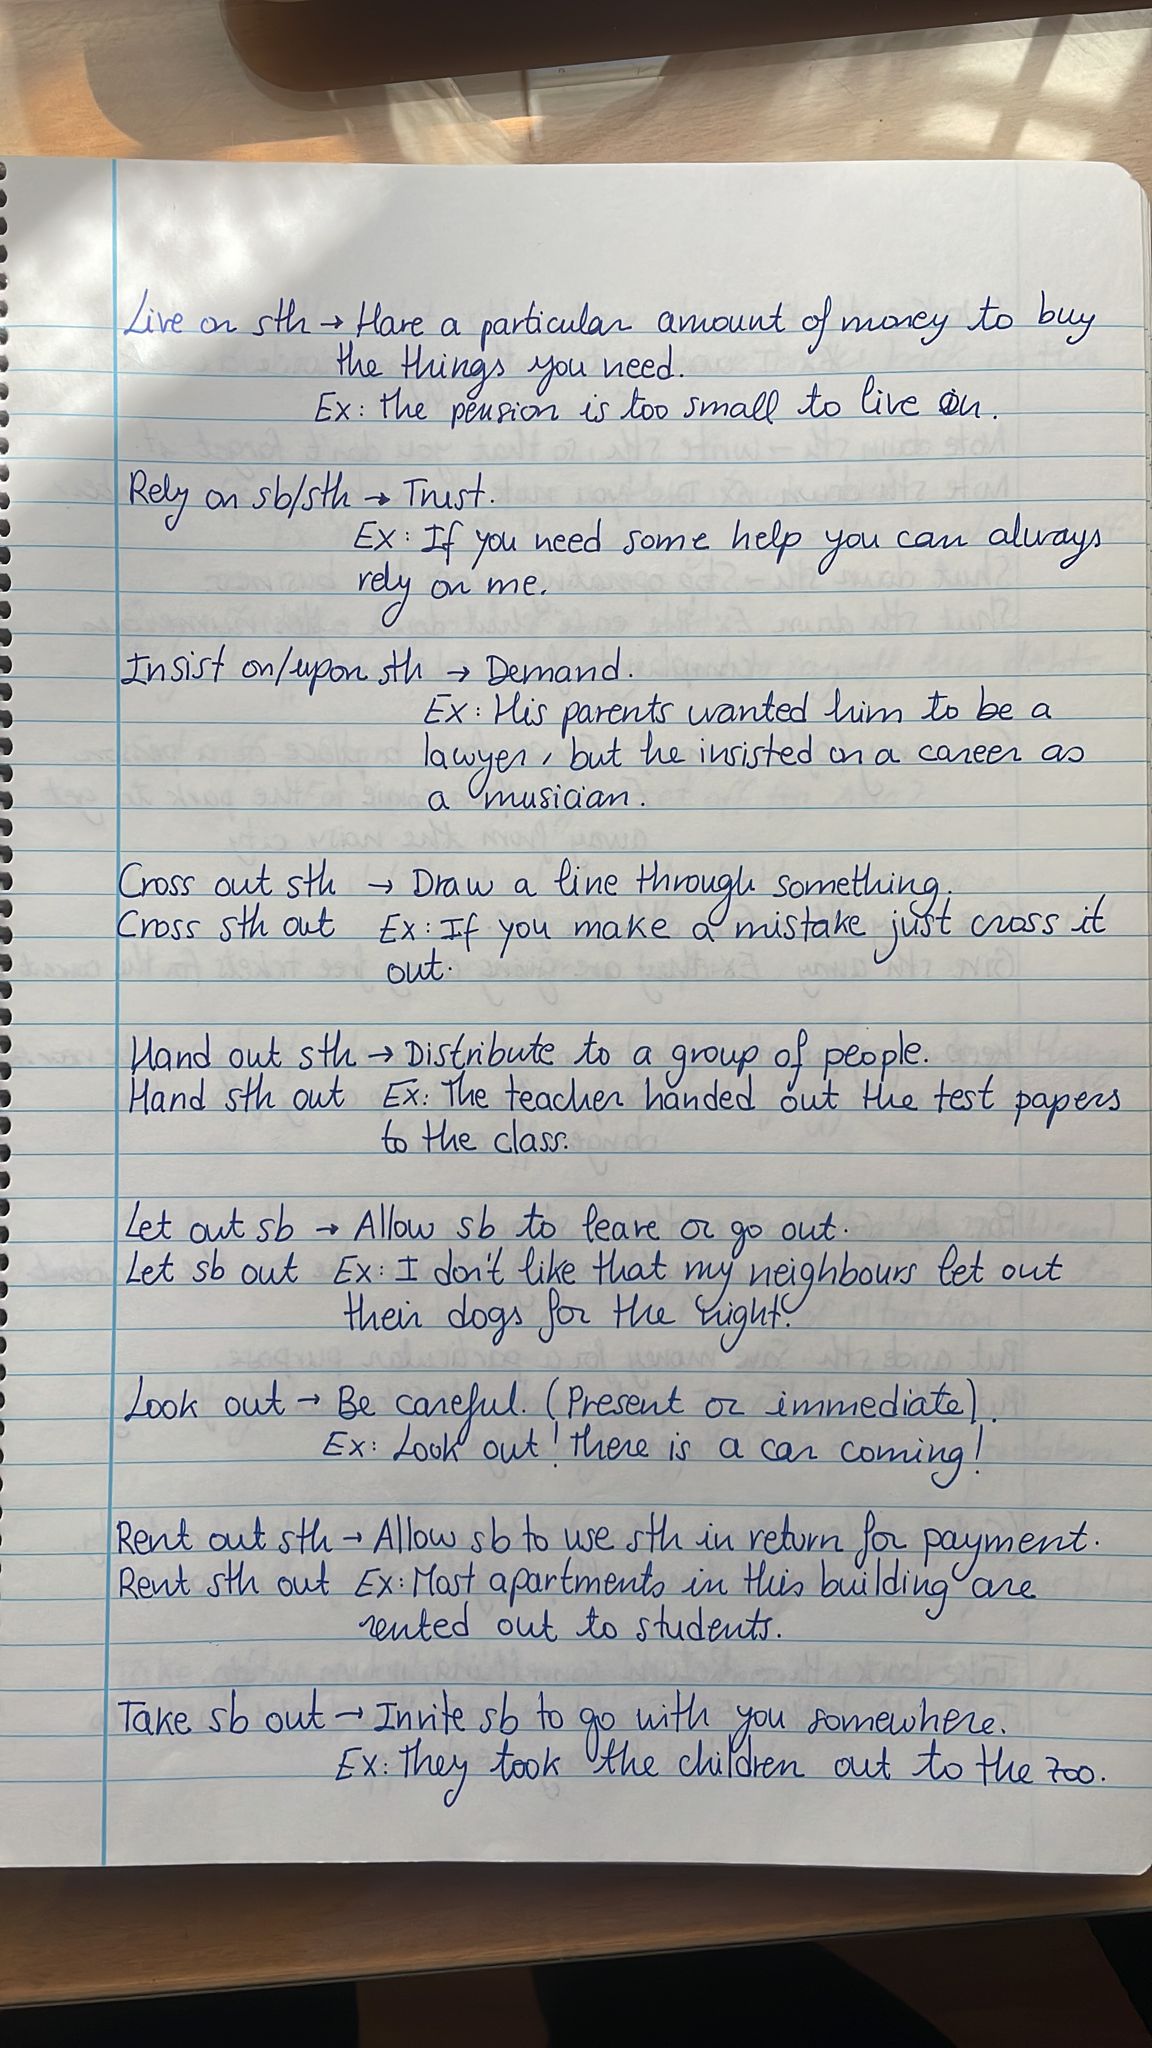 Live on sth → Have a particular amount of money to buy
the things you need.
Ex: The pension is too small to live on.
Rely on sb/sth → Trust.
Ex: If you need some help you can always
rely on me.
Insist on/upon sth → Demand.
Ex: His parents wanted him to be a
lawyer, but he insisted on a career as
a musician.
Cross out sth → Draw a line through something.
Cross sth out Ex: If you make a mistake just cross it
out.
Hand out sth → Distribute to a group of people.
Hand sth out Ex: The teacher handed out the test papers
to the class.
Let out sb → Allow sb to leave or go out.
Let sb out Ex: I don't like that my neighbours let out
their dogs for the night.
Look out → Be careful. (Present or immediate).
Ex: Look out! There is a car coming!
Rent out sth → Allow sb to use sth in return for payment.
Rent sth out Ex: Most apartments in this building are
rented out to students.
Take sb out → Invite sb to go with you somewhere.
Ex: They took the children out to the zoo.